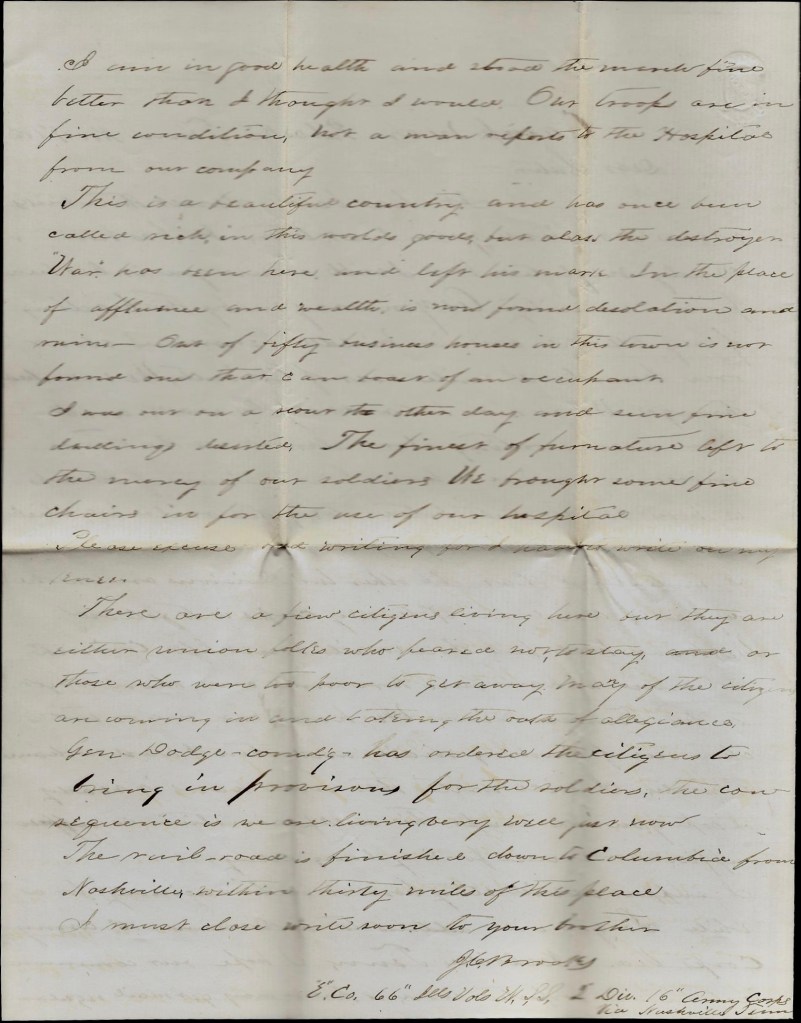 I am in good health and stood the march fine
better than I thought I would. Our troop are in
fine condition, not a man reports to the Hospital
from our company
This is a beautiful country, and has once been
called rich, in this worlds goods, but alas the destroyer
"War" has been here and left his mark In the place
of affluence and wealth, is now found desolation and
ruins — Out of fifty business houses in this town is not
found one that can boast of an occupant
I was out on a scout the other day and seen fine
deserted. The finest of furnature left to
the mercy of our soldiers We brought some fine
chairs in for the use of our hospital
Please excuse bad writing for I have to write on my
knee.
There are a few citizens living here but they are
either union folks who feared not, to stay, and or
those who were too poor to get away. Many of the citizens
are coming in and taking the oath of allegiance.
Gen Dodge - comdg - has ordered the citizens to
bring in provisons for the soldiers, the con
sequence is we are living very well just now
The rail-road is finished down to Columbia from
Nashville, within thirty mile of this place
I must close write soon to your brother
J C Brooks
"E" Co. 66" Ills Vols W. S. S. 2 Div. 16" Army Corps
Via Nashville Tenn